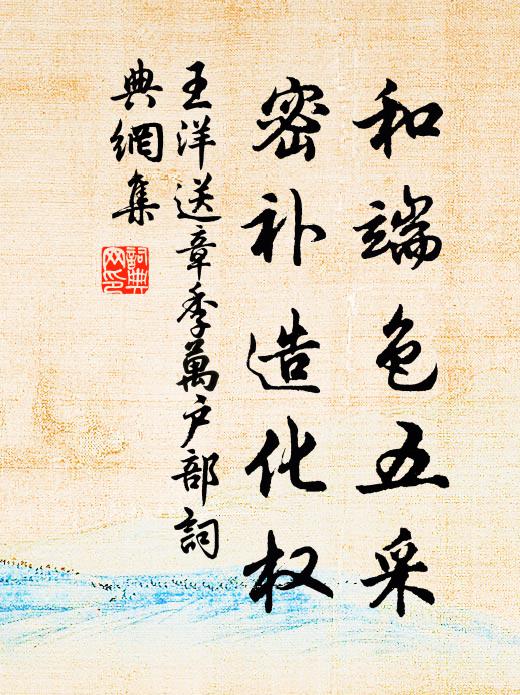 和端色五采
密补造化权
王洋送章季萬户部詞
典網集
詞典网印